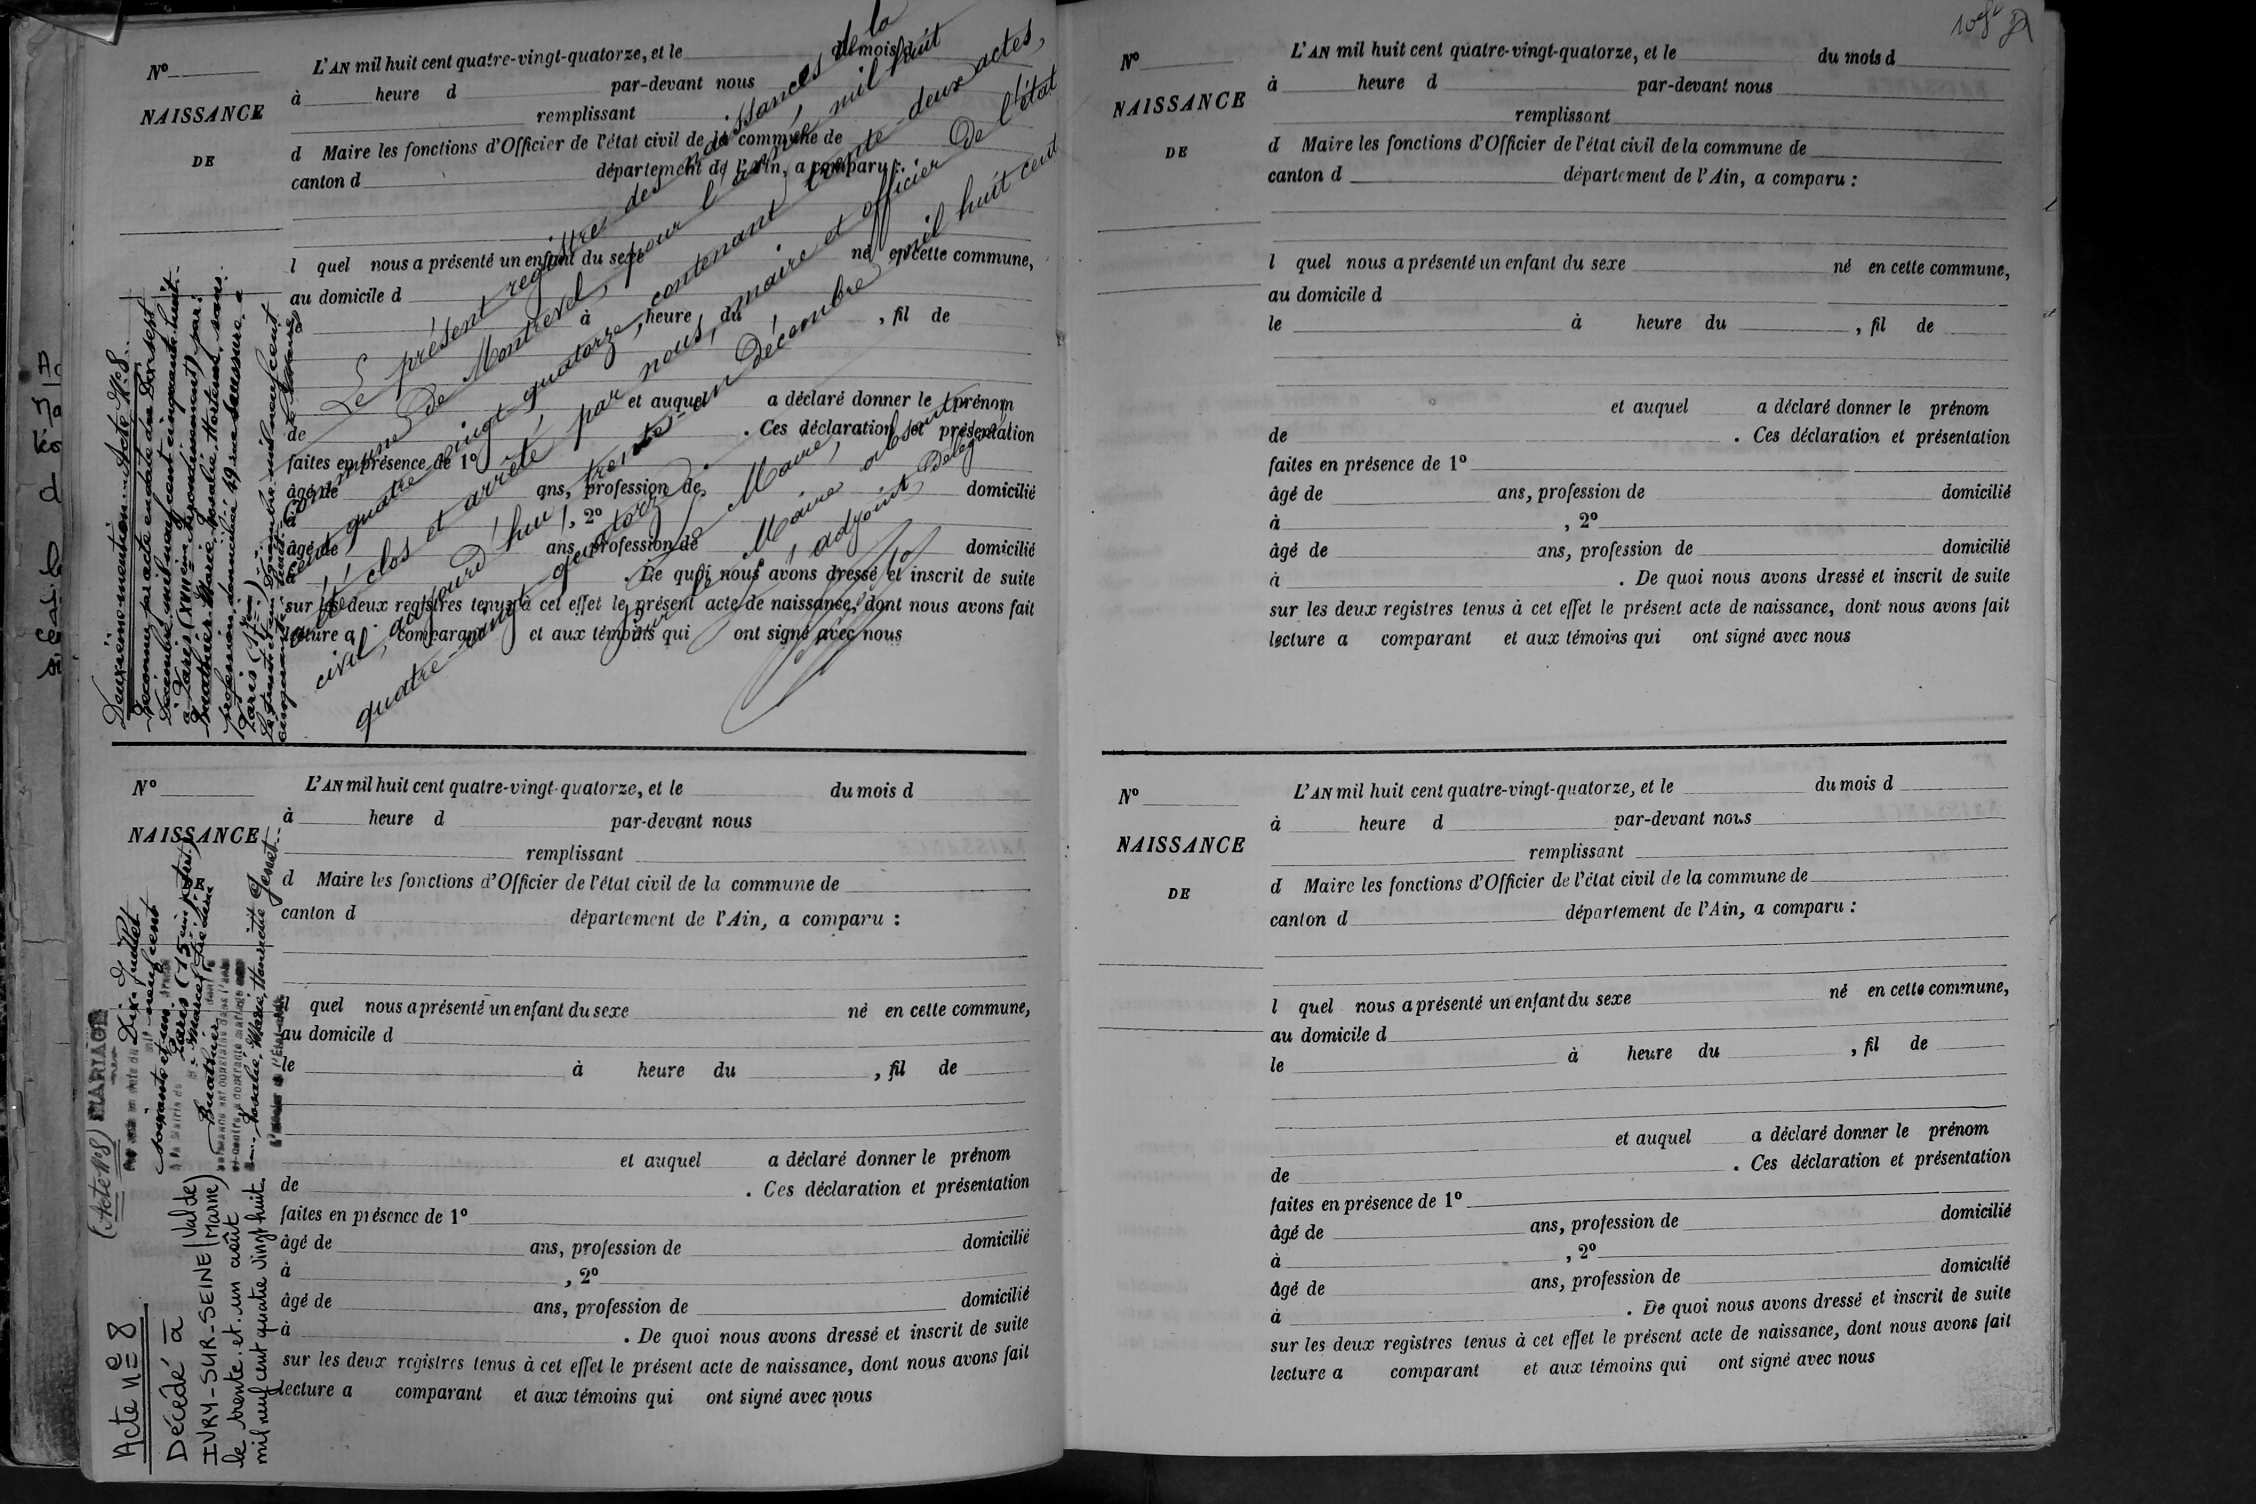 Nº
NAISSANCE
DE
L'AN mil huit cent quatre-vingt-quatorze, et le du mois d
à heure d par-devant nous
remplissant
d Maire les fonctions d'Officier de l'état civil de la commune de
canton d département de l'Ain, a comparu :
l quel nous a présenté un enfant du sexe né en cette commune,
au domicile d
à heure du , fil de
et auquel a déclaré donner le prénom
de . Ces déclaration et présentation
faites en présence de 1º
âgé de ans, profession de domicilié
à , 2º
âgé de ans, profession de domicilié
. De quoi nous avons dressé et inscrit de suite
sur les deux registres tenus à cet effet le présent acte de naissance, dont nous avons fait
lecture a comparant et aux témoins qui ont signé avec nous
Le présent registre des naissances de la
commune de Montrevel, pour l'année mil huit
cent quatre vingt quatorze, contenant trente-deux actes,
a été clos et arrêté par nous, maire et officier de l'état
civil, aujourd'hui trente-un décembre mil huit cent
quatre-vingt-quatorze.
Le Maire,
Pour le Maire absent,
l'adjoint délégué
Deuxième mention Acte Nº 8.
Reconnu par acte en date du Dix sept
Décembre mil neuf cent cinquante huit.
à Paris (XVIII
Marie, Rosalie, Hortense, sans
profession, domiciliée 49 rue
Paris
Décembre mil neuf cent
cinquante huit.
Nº
NAISSANCE
DE
L'AN mil huit cent quatre-vingt-quatorze, et le du mois d
à heure d par-devant nous
remplissant
d Maire les fonctions d'Officier de l'état civil de la commune de
canton d département de l'Ain, a comparu :
l quel nous a présenté un enfant du sexe né en cette commune,
au domicile d
le à heure du , fil de
et auquel a déclaré donner le prénom
de . Ces déclaration et présentation
faites en présence de 1º
âgé de ans, profession de domicilié
à , 2º
âgé de ans, profession de domicilié
à . De quoi nous avons dressé et inscrit de suite
sur les deux registres tenus à cet effet le présent acte de naissance, dont nous avons fait
lecture a comparant et aux témoins qui ont signé avec nous
(Acte Nº 8) MARIAGE
en date du Dix Juillet
mil neuf cent
soixante et un.
à la Mairie de Paris (15
Marcel
Rosalie, Marie, Henriette Genet.
l'Etat
Acte nº 8
Décédé à
IVRY-SUR-SEINE (Val de Marne)
le trente et un août
mil neuf cent quatre vingt huit.
Nº
NAISSANCE
DE
L'AN mil huit cent quatre-vingt-quatorze, et le du mois d
à heure d par-devant nous
remplissant
d Maire les fonctions d'Officier de l'état civil de la commune de
canton d département de l'Ain, a comparu :
l quel nous a présenté un enfant du sexe né en cette commune,
au domicile d
le à heure du , fil de
et auquel a déclaré donner le prénom
de . Ces déclaration et présentation
faites en présence de 1º
âgé de ans, profession de domicilié
à , 2º
âgé de ans, profession de domicilié
à . De quoi nous avons dressé et inscrit de suite
sur les deux registres tenus à cet effet le présent acte de naissance, dont nous avons fait
lecture a comparant et aux témoins qui ont signé avec nous
Nº
NAISSANCE
DE
L'AN mil huit cent quatre-vingt-quatorze, et le du mois d
à heure d par-devant nous
remplissant
d Maire les fonctions d'Officier de l'état civil de la commune de
canton d département de l'Ain, a comparu :
l quel nous a présenté un enfant du sexe né en cette commune,
au domicile d
le à heure du , fil de
et auquel a déclaré donner le prénom
de . Ces déclaration et présentation
faites en présence de 1º
âgé de ans, profession de domicilié
à , 2º
âgé de ans, profession de domicilié
à . De quoi nous avons dressé et inscrit de suite
sur les deux registres tenus à cet effet le présent acte de naissance, dont nous avons fait
lecture a comparant et aux témoins qui ont signé avec nous